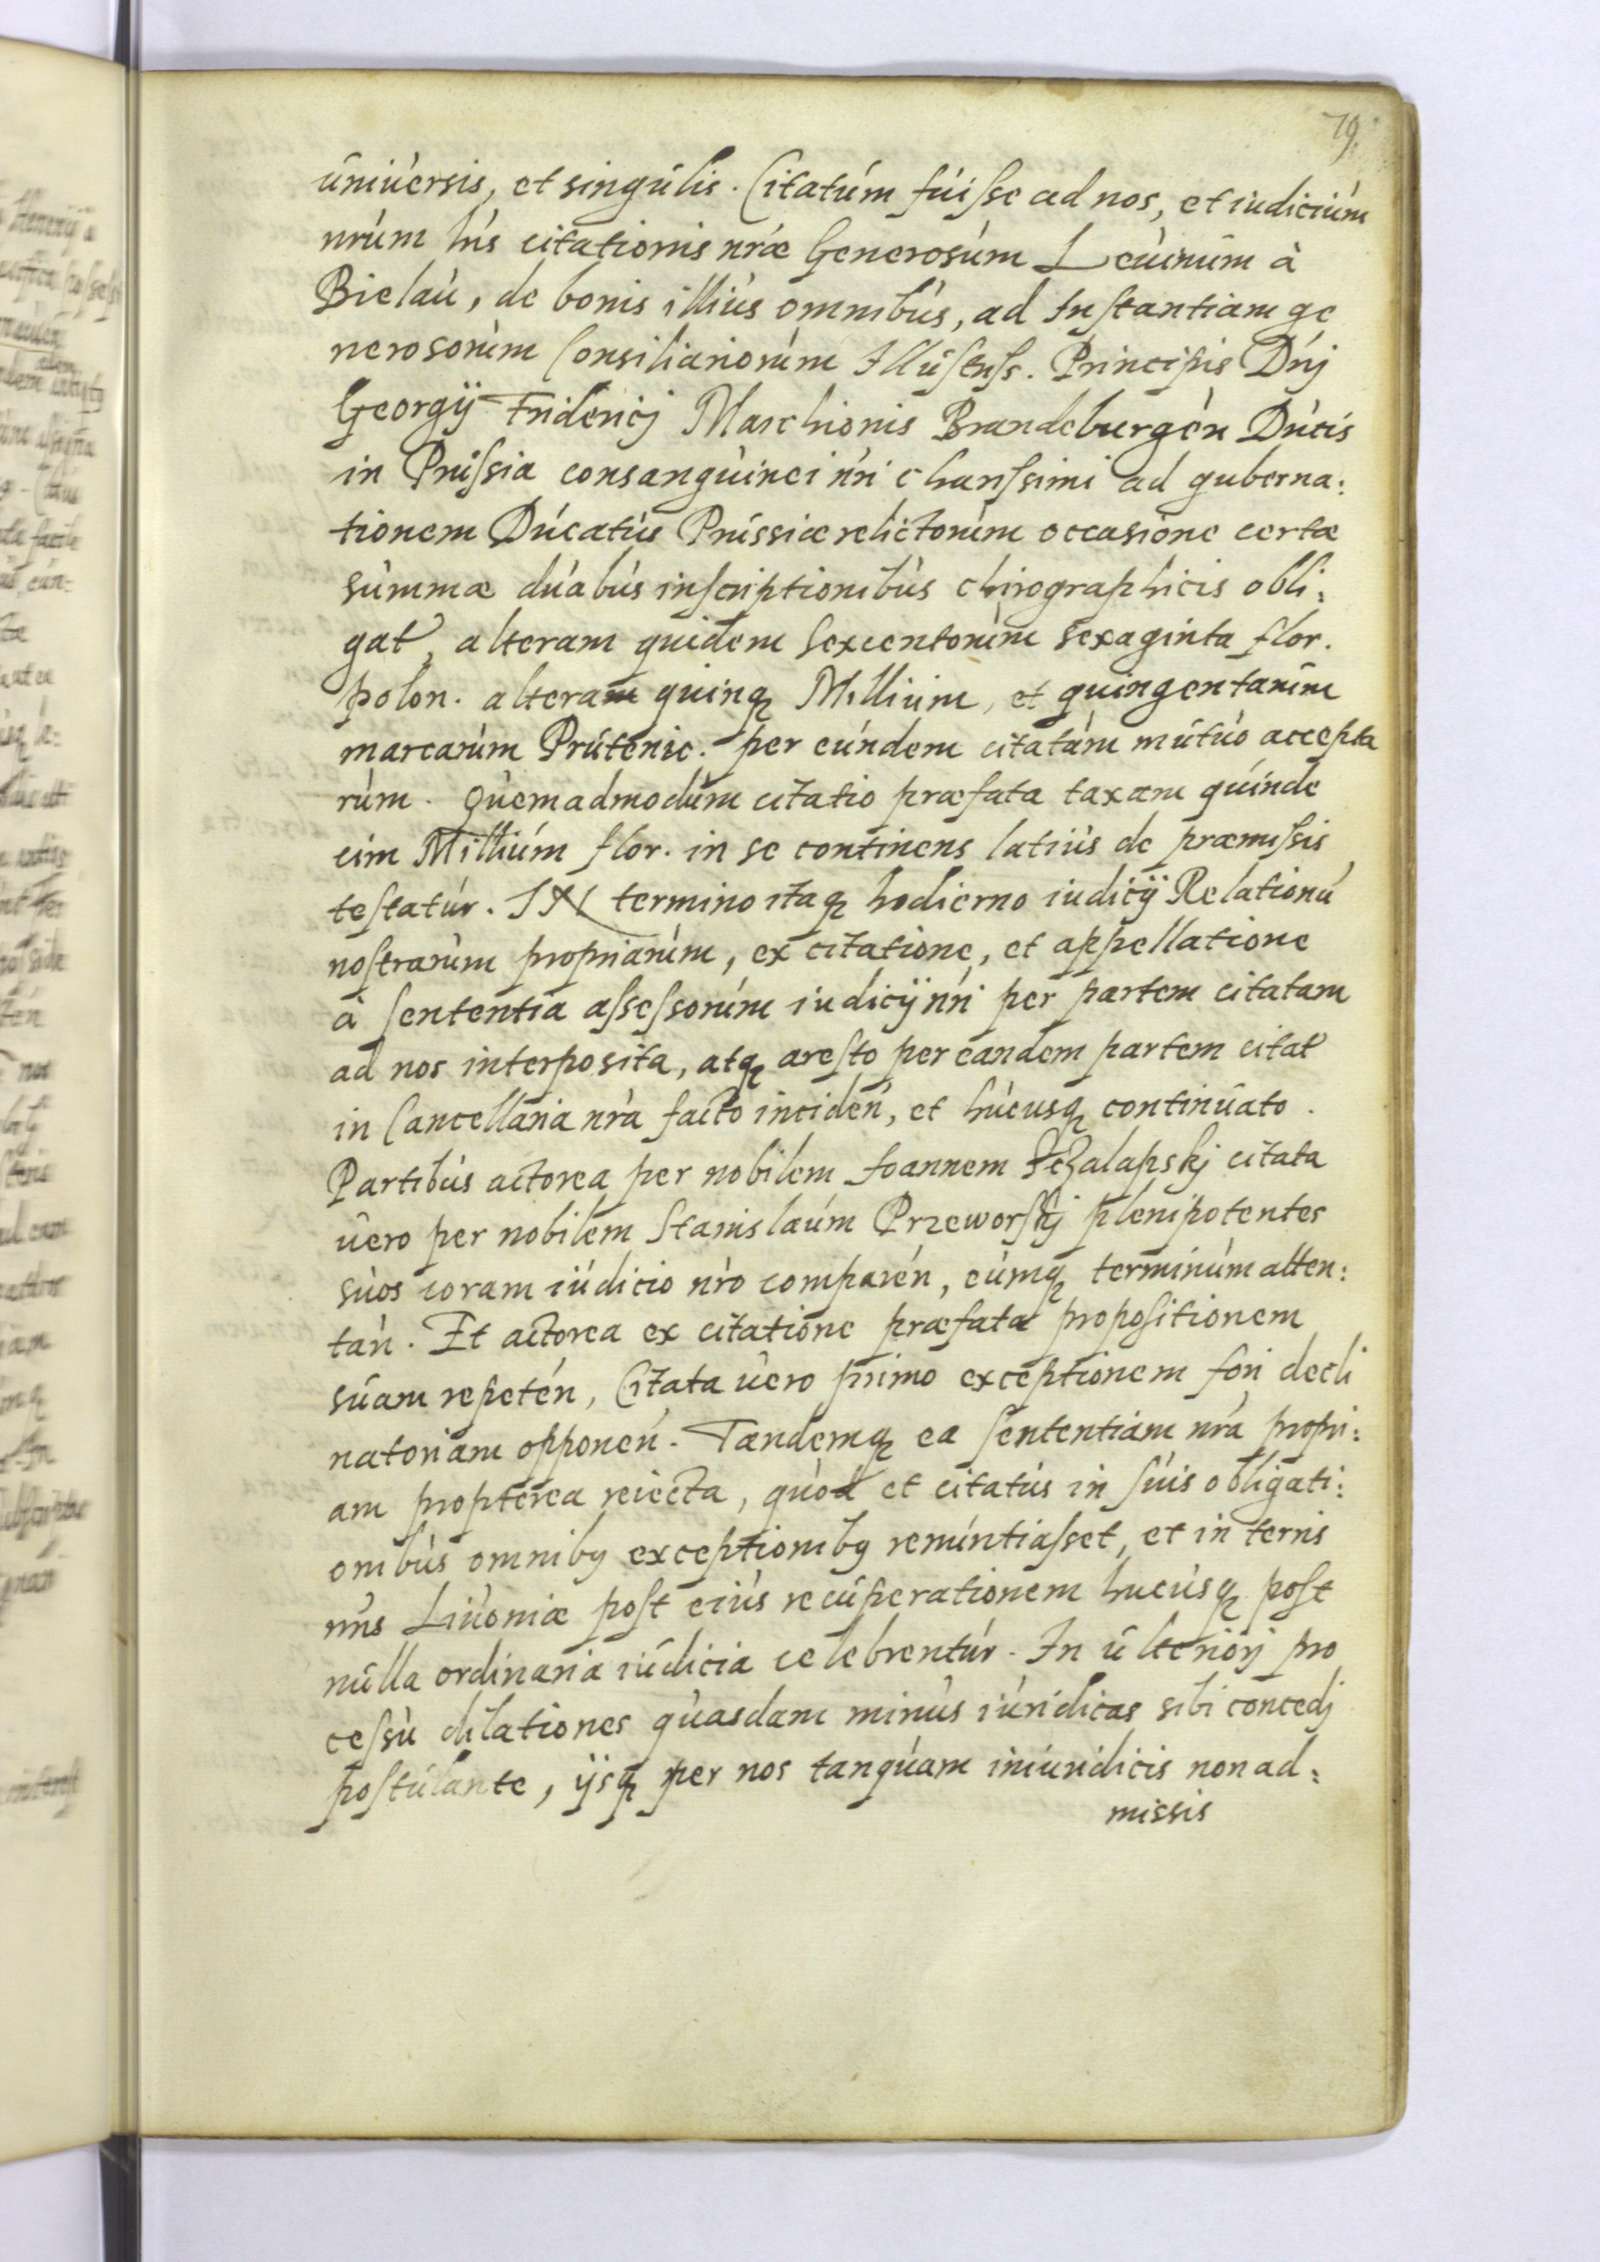 79.
universis, et singulis. Citatum fuisse ad nos, et iudicium
nrum lris citationis nrae Generosum Levinum à
Bielau, de bonis illius omnibus, ad Instantiam ge
nerosorum Consiliariorum Illustriss. Principis Dnj
Georgÿ Fridericj Marchionis Brandeburgen Ducis
in Prussia consanguinei nri charissimi ad guberna:
tionem Ducatus Prussiae relictorum occasione certae
summae duabus inscriptionibus chirographicis obli:
gat, alteram quidem sexcentorum sexaginta flor.
polon. alteram quinq Millium, et quingentarum
marcarum Prutenic. per eundem citatum mutuo accepta
rum. Quemadmodum citatio praefata taxam quinde
cim Millium flor. in se continens latius de praemissis
testatur. IN termino itaq hodierno iudicÿ Relationu
nostrarum propriarum, ex citatione, et appellatione
à sententia assessorum iudicÿ nri per partem citatam
ad nos interposita, atq aresto per eandem partem citat
in Cancellaria nra facto inciden, et hucusq continuato.
Partibus actorea per nobilem Joannem citata
vero per nobilem Stanislaum Przeworskj plenipotentes
suos coram iudicio nro comparen, eumq terminum atten:
tan. Et actorea ex citatione praefata propositionem
suam repeten, Citata vero primo exceptionem fori decli
natoriam opponen. Tandemq ea sententiam nra propri:
am propterea reiecta, quod et citatus in suis obligati:
onibus omnibq exceptionibq renuntiasset, et in terris
nris Livoniae post eius recuperationem hucusq post
nulla ordinaria iudicia celebrentur. In ulteriorj pro
cessu dilationes quasdam minus iuridicas sibi concedj
postulante, ÿsq per nos tanquam iniuridicis non ad:
missis